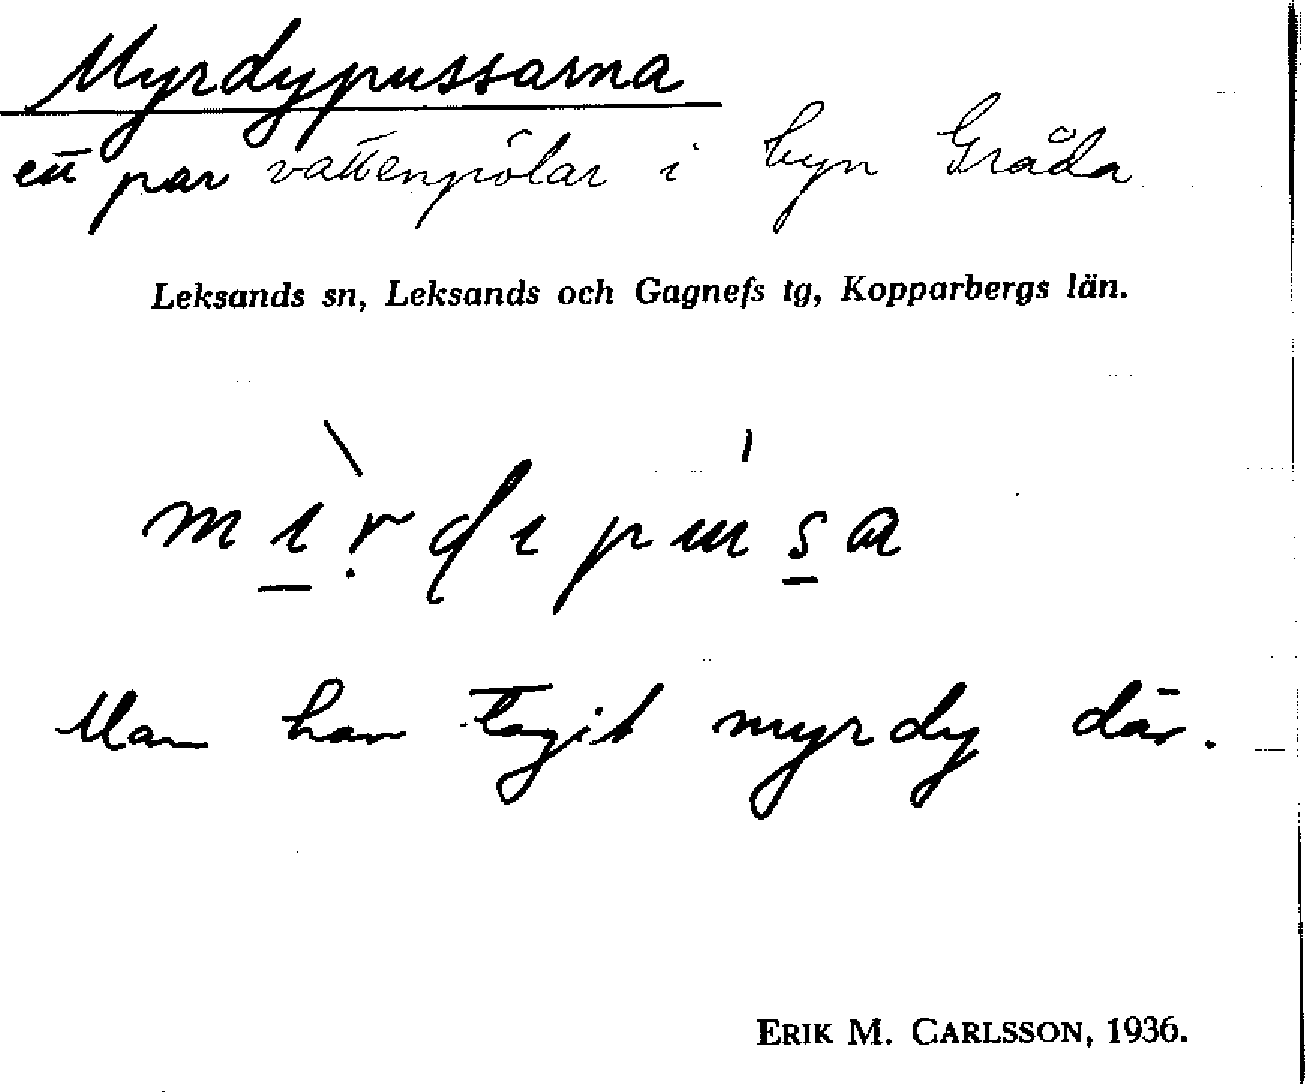 Myrdypussarna
ett par vattenpölar i byn Gråda
Leksands sn, Leksands och Gagnefs tg, Kopparbergs län.
mìṛdɩpuśa
Man har tagit myrdy där.
ERIK M. CARLSSON, 1936.